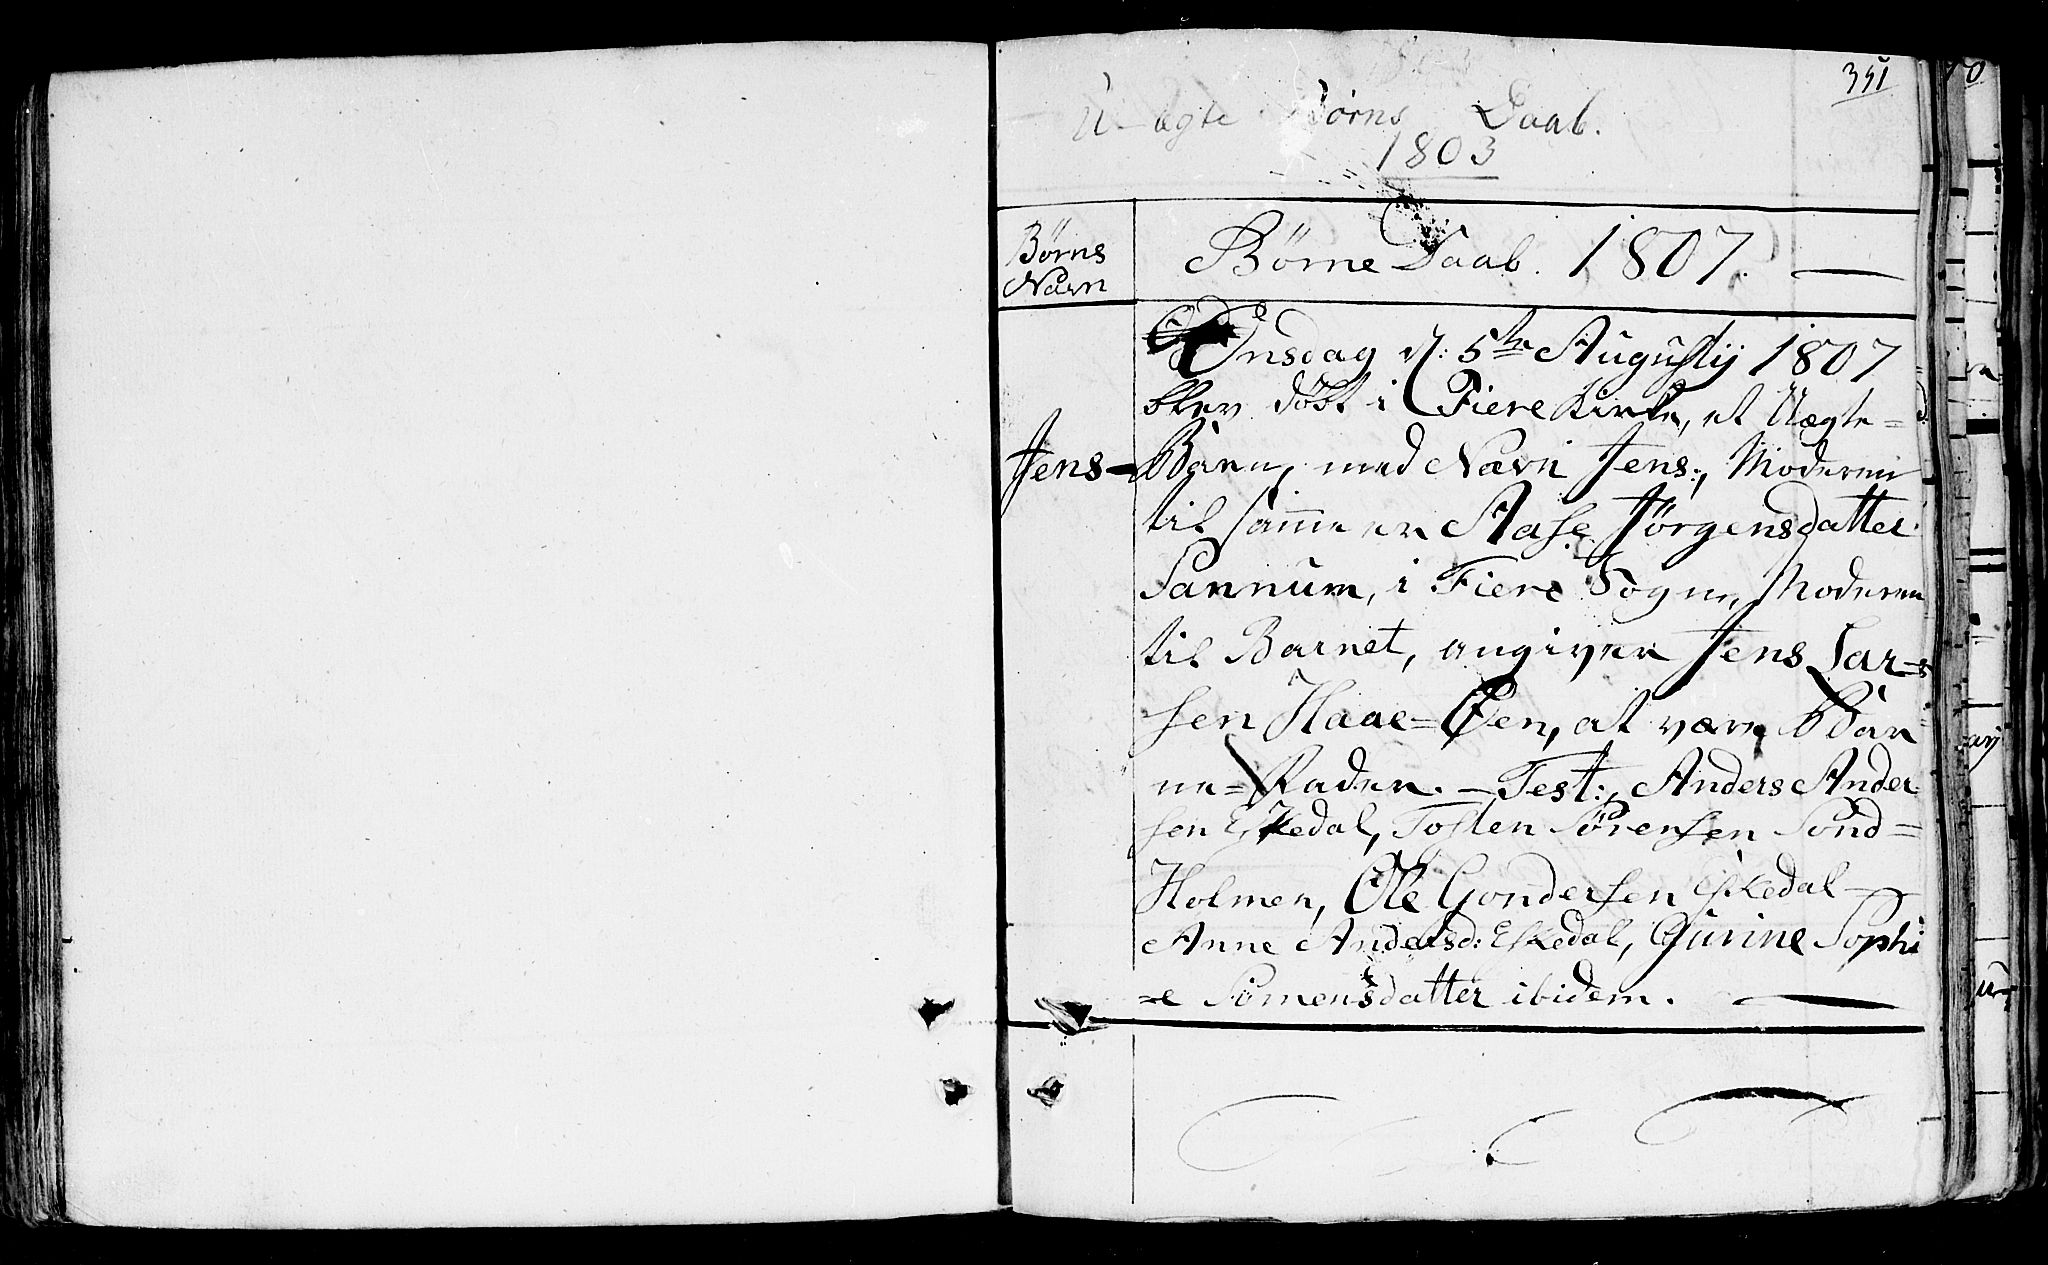 351
U-ægte Børns Daab.
1803
Børns
Navn
Børne Daab. 1807.
Onsdag d: 5te Augustij 1807
blev døbt i Fiere Kirke, et Uægte=
Jens- Barn, med Navn Jens:, Moderen
til samme er Aase Jörgensdatter
Sannum, i Fiere Sogn, Moderen
til Barnet, angiver Jens Lar=
sen Haae=Øen, at være Bar
ne=Fader. - Test:, Anders Ander
sen Eskedal, Tosten Sørensen Sond=
Holmen, Ole Gondersen Eskedal
Anne Andersd: Eskedal, Gurine Sophi
=e Simensdatter ibidem.